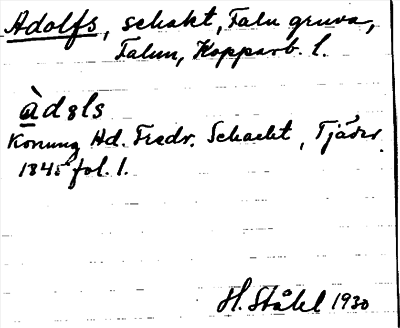 Adolfs, schakt, Falu gruva,
Falun, Kopparb. l.
àdɷls
Konung Ad. Fredr. Schacht, Tjäder
1845 fol. 1.
H. Ståhl 1930